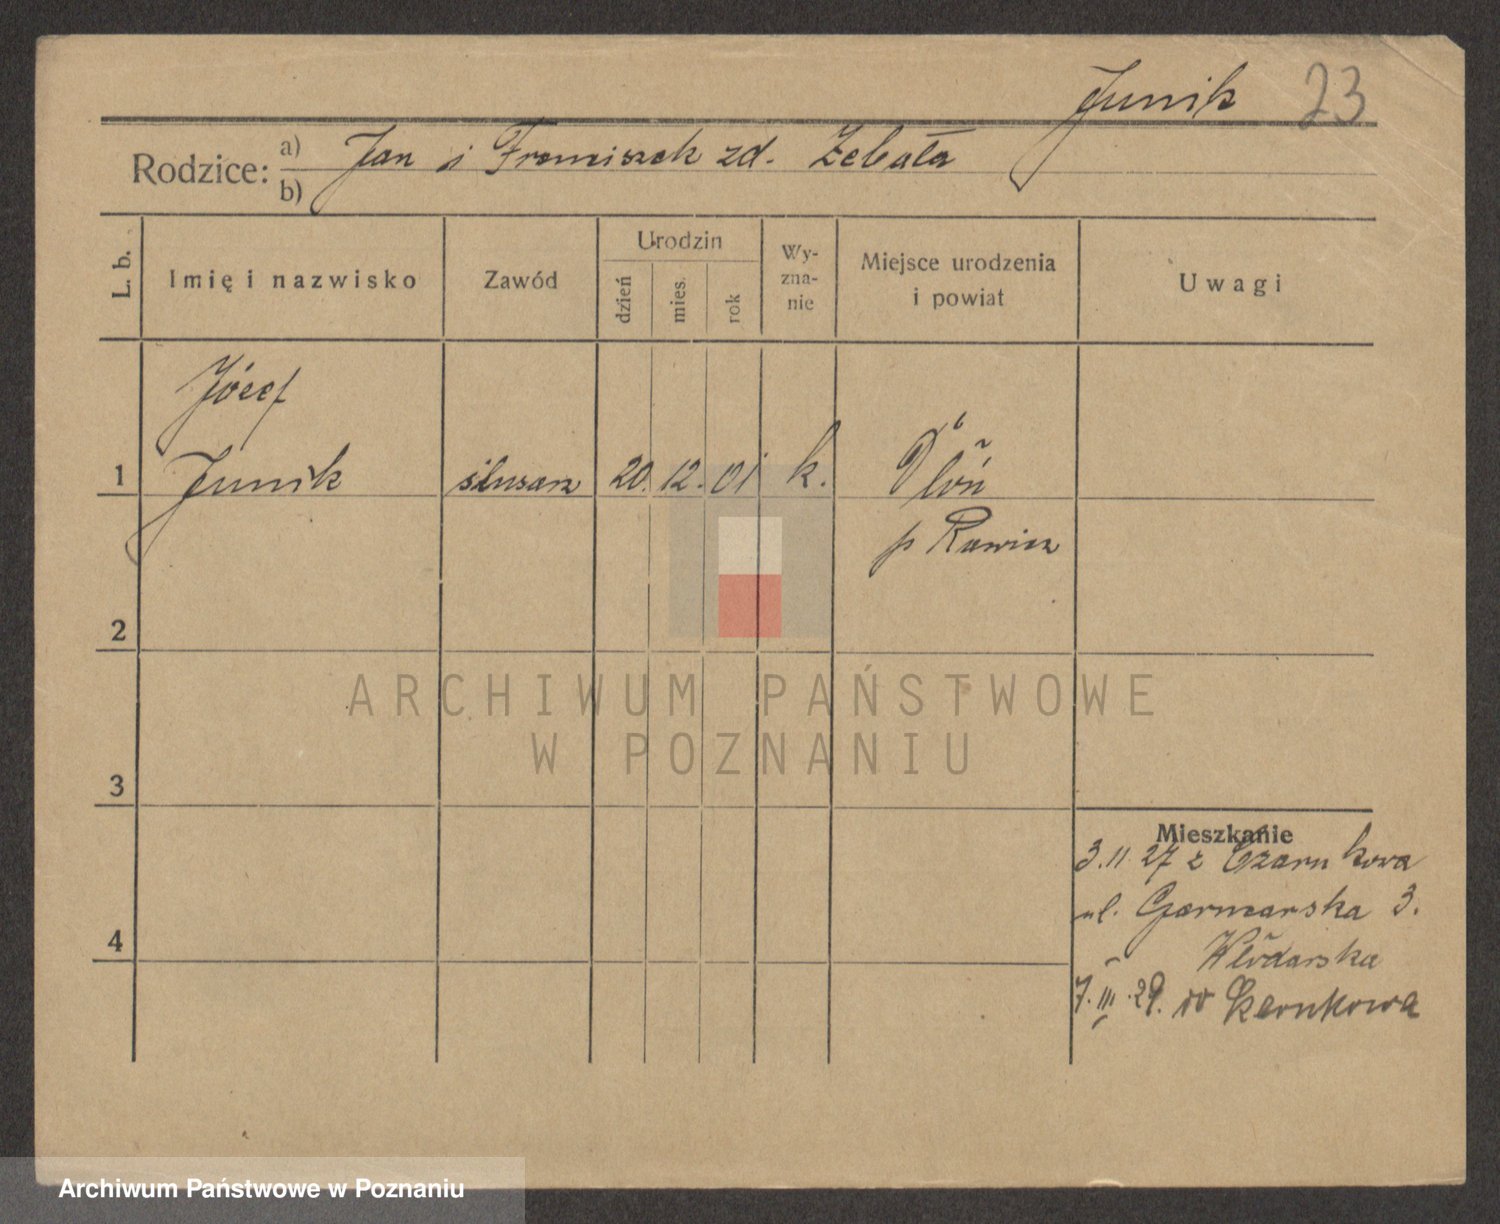 Junik 23
Rodzice: a) Jan i Franciszek zd. Zebała
b)
L. b. Imię i nazwisko Zawód Urodzin dzień mies. rok Wy-zna-nie Miejsce urodzenia i powiat Uwagi
Józef
1 Junik ślusarz 20. 12. 01 k. Dłoń
p Rawicz
2
ARCHIWUM PAŃSTWOWE
W POZNANIU
3
Mieszkanie
3.11.27 z Czarnkowa
ul. Garncarska 3.
4
Włódarska
7.III.29. do Czarnkowa
Archiwum Państwowe w Poznaniu